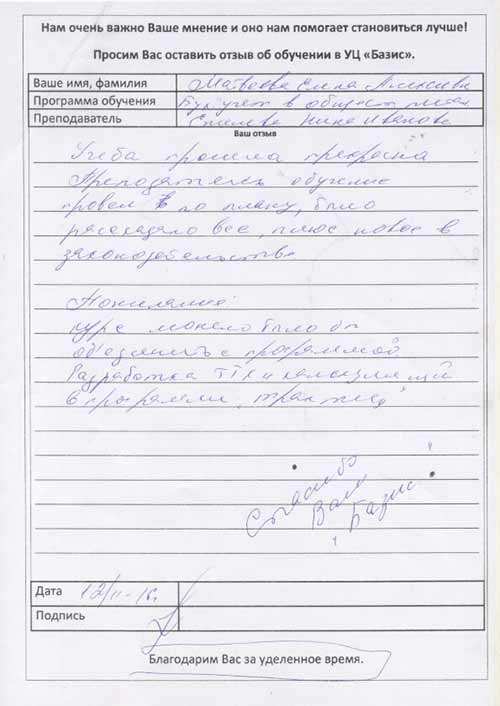 Нам очень важно Ваше мнение и оно нам помогает становиться лучше!
Просим Вас оставить отзыв об обучении в УЦ «Базис».
Ваше имя, фамилия Матвеева Елена Алексеевна
Программа обучения Бухучет в общест. питан
Преподаватель Нина Ивановна
Ваш отзыв
Учеба прошла прекрасна
Преподаватель обучение
провел по плану, было
рассказано все, плюс новое в
законодательстве
Пожелание:
курс можно было бы
объединить с программой.
Разработка ТТК и калькуляций
в программе, практика
Спасибо
Вам
Базис
Дата 12/11-16г.
Подпись
Благодарим Вас за уделенное время.